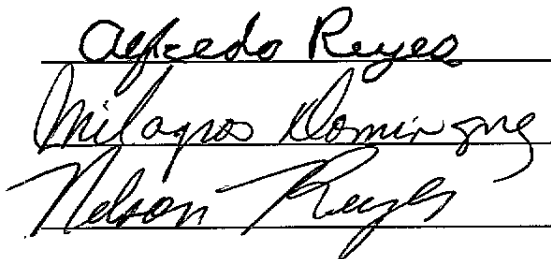 Alfredo Reyes
Milagros Dominguez
Nelson Reyes